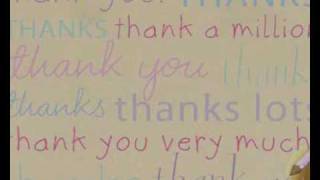 thank you! THANKS
THANKS thank a million
thank you thank
thanks thanks lots
thank you very much
thank